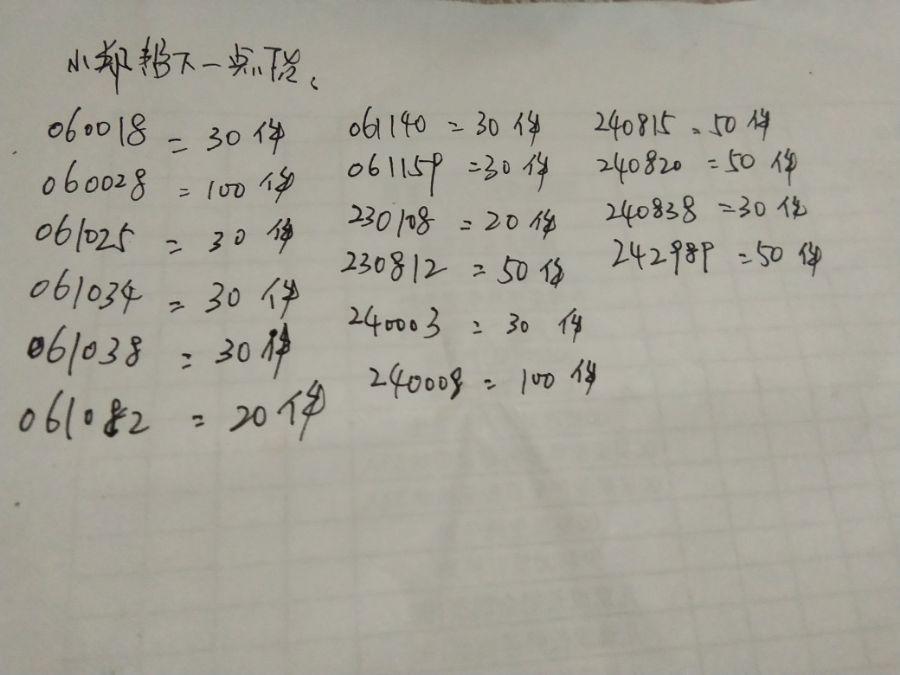 小郑帮下一点货、
060018 = 30件
060028 = 100件
061025 = 30件
061034 = 30件
061038 = 30件
061082 = 20件
061140 = 30件
061159 = 30件
230108 = 20件
230812 = 50件
240003 = 30件
240008 = 100件
240815 = 50件
240820 = 50件
240838 = 30件
242989 = 50件